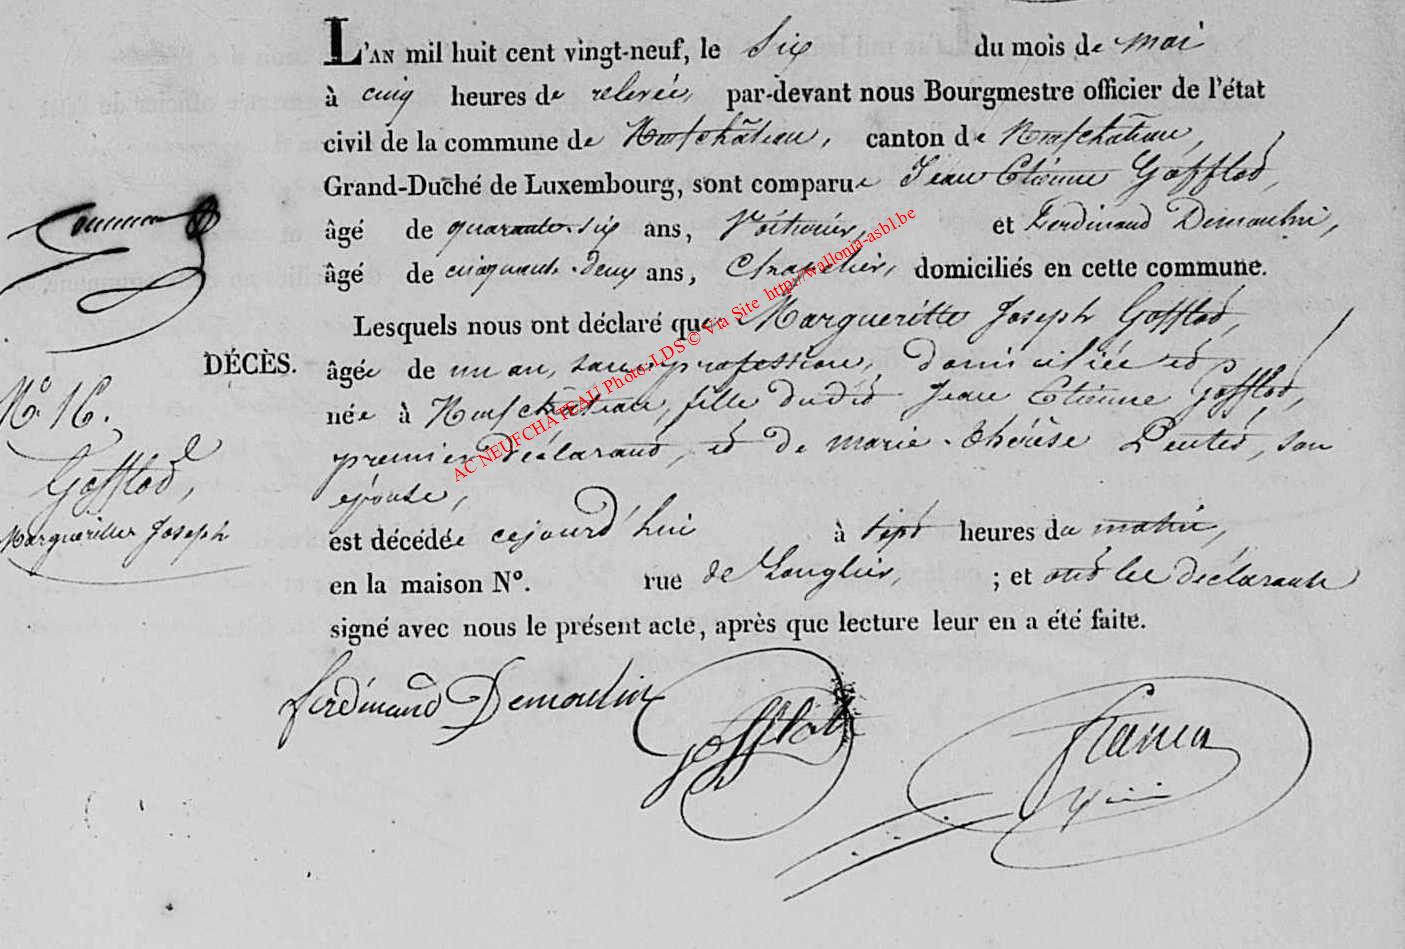 L'AN mil huit cent vingt-neuf, le Six du mois de mai
à cinq heures de relevée, par-devant nous Bourgmestre officier de l'état
civil de la commune de Neufchâteau, canton de Neufchâteau,
Grand-Duché de Luxembourg, sont comparue Jean Etienne Gofflod,
âgé de quarante-six ans, Voiturier, et Ferdinand Demoulin,
âgé de cinquante-deux ans, Chapelier, domiciliés en cette commune.
Lesquels nous ont déclaré que Margueritte Joseph Gofflod,
DÉCÈS.
âgée de un an, sans profession, domiciliée et
née à Neufchâteau, fille dudit Jean Etienne Gofflod,
premier déclarant, et de marie-thérèse Pentet, son
épouse,
est décédée cejourd'hui à sept heures du matin,
en la maison N°. rue de Longlier, ; et ont les déclarants
signé avec nous le présent acte, après que lecture leur en a été faite.
N° 16.
Gofflod,
Margueritte Joseph
ferdinand Demoulin
Gofflot
AC NEUFCHATEAU Photo-LDS © Via Site http://wallonia-asbl.be